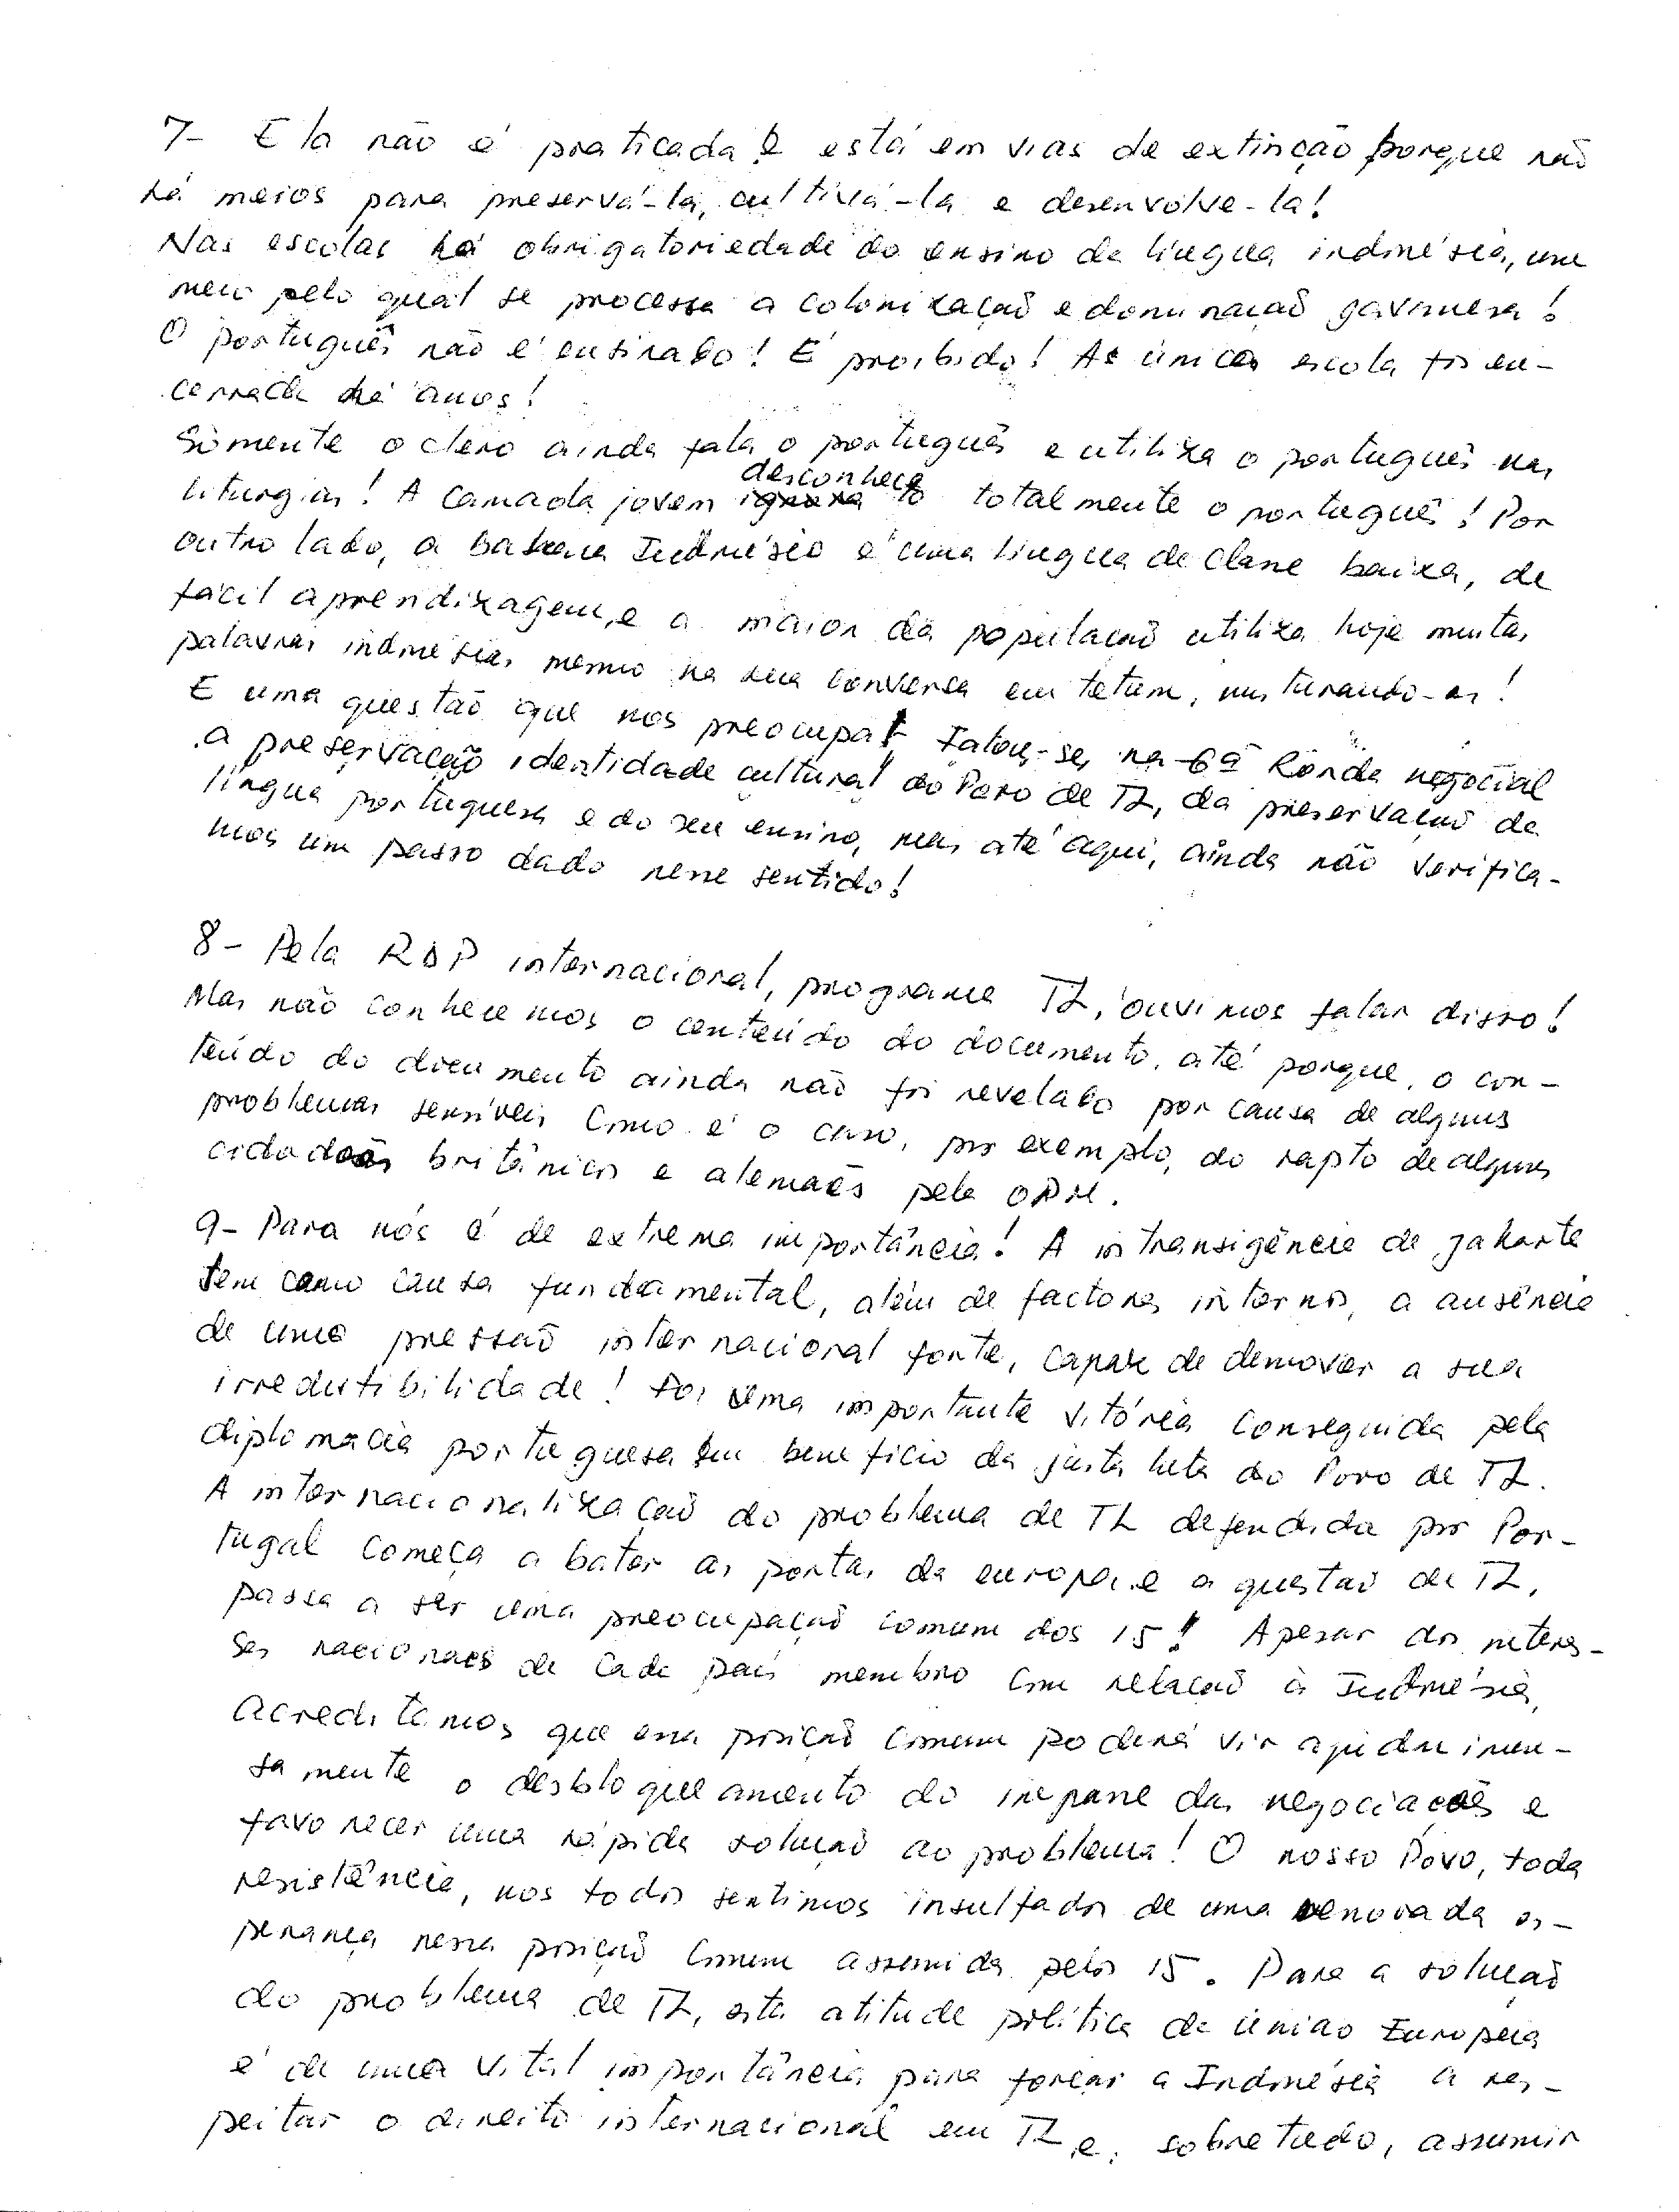 7- Ela não é praticada e está em vias de extinção porque não
há meios para preservá-la, cultivá-la e desenvolve-la!
Nas escolas há obrigatoriedade do ensino da língua indonésia, um
meio pelo qual se processa a colonização e dominação javanesa!
O português não é ensinado! É proibido! A única escola foi en-
cerrada há anos!
Sòmente o clero ainda fala o português e utiliza o português nas
liturgias! A camada jovem desconhece totalmente o português! Por
outro lado, a bahasa Indonésio é uma língua de classe baixa, de
fácil aprendizagem, e a maior da população utiliza hoje muitas
palavras indonésias mesmo na sua conversa em tetum, misturando-as!
E uma questão que nos preocupa! Falou-se, na 6ª Ronda negocial
a preservação identidade cultural do Povo de TL, da preservação da
língua portuguesa e do seu ensino, mas até aqui, ainda não verifica-
mos um passo dado nesse sentido!
8- Pela RDP internacional, programa TL, ouvimos falar disso!
Mas não conhecemos o conteúdo do documento, até porque, o con-
teúdo do documento ainda não foi revelado por causa de alguns
problemas sensíveis como é o caso, por exemplo, do rapto de alguns
cidadãos britânicos e alemães pela OPM.
9- Para nós é de extrema importância! A intransigência de Jakarta
tem como causa fundamental, além de factores internos, a ausência
de uma pressão internacional forte, capaz de demover a sua
irredutibilidade! Foi uma importante vitória conseguida pela
diplomacia portuguesa em benefício da justa luta do Povo de TL.
A internacionalização do problema de TL defendida por Por-
tugal começa a bater as portas da europa e a questão de TL,
passa a ser uma preocupação comum dos 15! Apesar dos interes-
ses nacionaes de cada país membro com relação à Indonésia,
acreditamos que essa posição comum poderá vir ajudar imen-
samente o desbloqueamento do impasse das negociações e
favorecer uma rápida solução ao problema! O nosso Povo, toda
resistência, nos todos sentimos insulfados de uma renovada es-
perança nessa posição comum assumida pelos 15. Para a solução
do problema de TL, esta atitude política da união Europeia
é de uma vital importância para forçar a Indonésia a res-
peitar o direito internacional em TL e, sobretudo, assumir